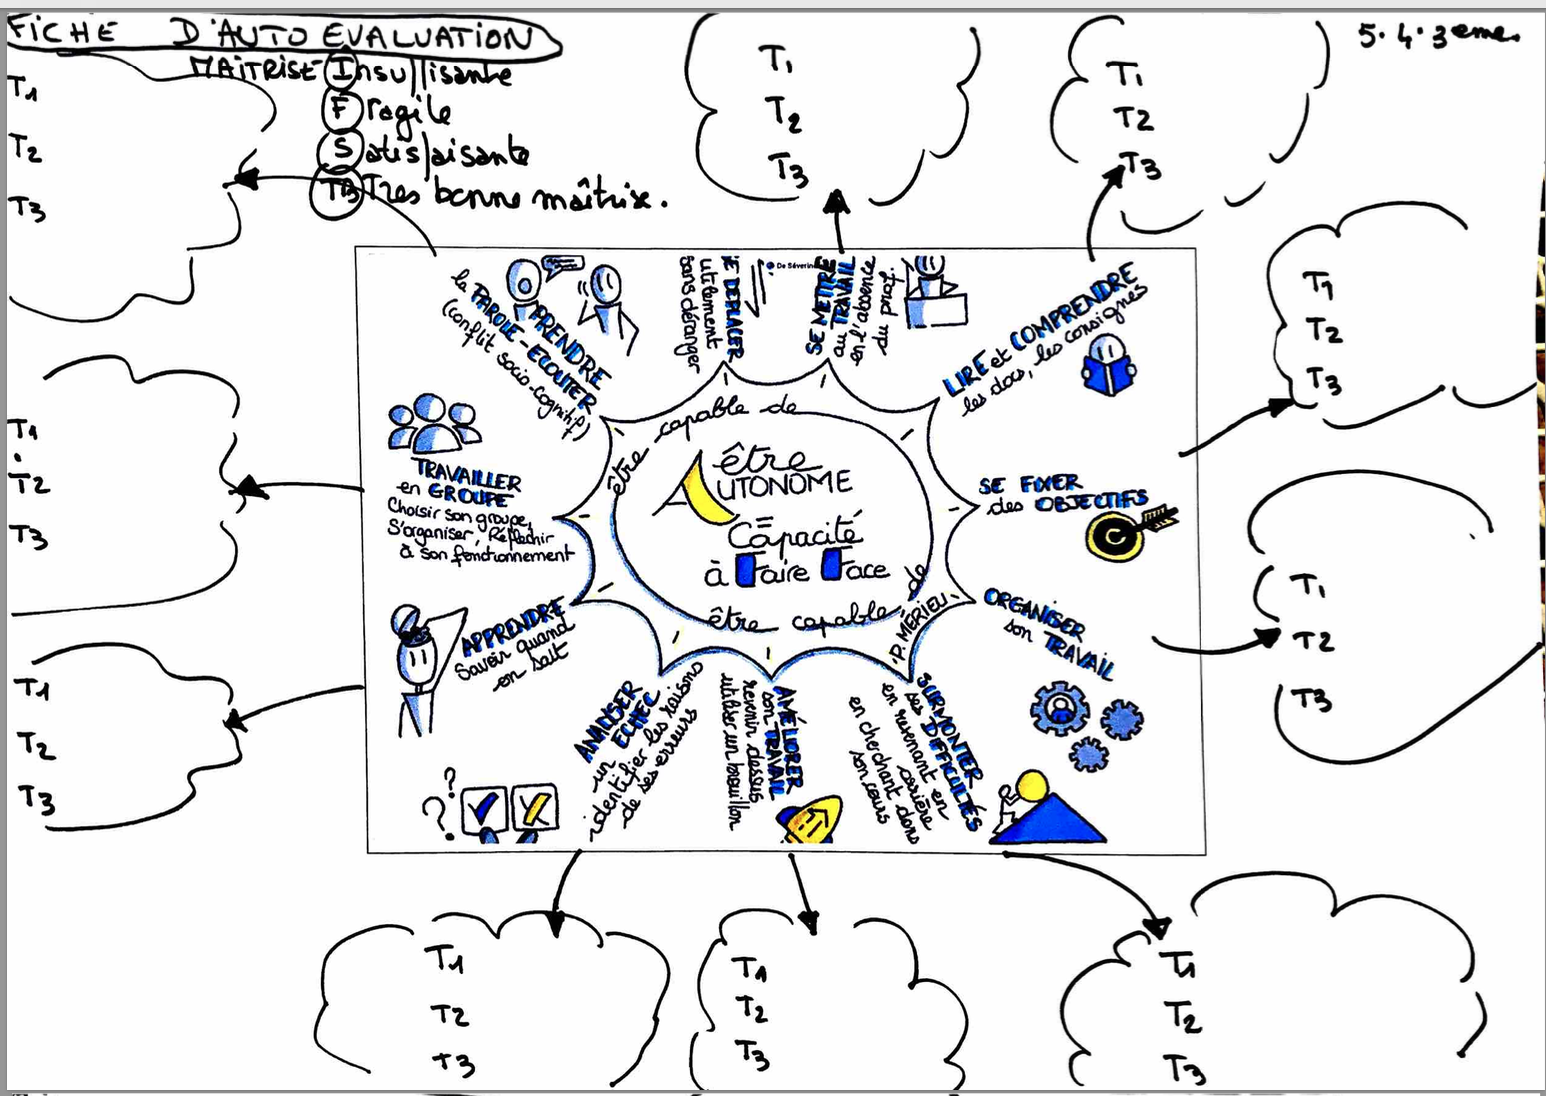 FICHE D'AUTO EVALUATION
5. 4. 3emes
MAITRISE Insuffisante
Fragile
Satisfaisante
TB Tres bonne maîtrise.
T1
T2
T3
T1
T2
T3
T1
T2
T3
PRENDRE
la PAROLE - ECOUTER
(conflit socio-cognitif)
SE DEPLACER
utilement
sans déranger
SE METTRE
au TRAVAIL
en l'absence
du prof.
LIRE et COMPRENDRE
les docs, les consignes
T1
T2
T3
TRAVAILLER
en GROUPE
Choisir son groupe,
S'organiser, Réfléchir
à son fonctionnement
être capable de
être
AUTONOME
=
Capacité
à Faire Face
être capable de
P. MERIEU
SE FIXER
des OBJECTIFS
T1
T2
T3
T1
T2
T3
APPRENDRE
Savoir quand
on sait
ORGANISER
son TRAVAIL
T1
T2
T3
T1
T2
T3
ANALYSER
un ECHEC
identifier les raisons
de ses erreurs
AMÉLIORER
son TRAVAIL
revenir dessus
utiliser un brouillon
SURMONTER
ses DIFFICULTÉS
en revenant en
arrière
en cherchant dans
son cours
T1
T2
T3
T1
T2
T3
T1
T2
T3